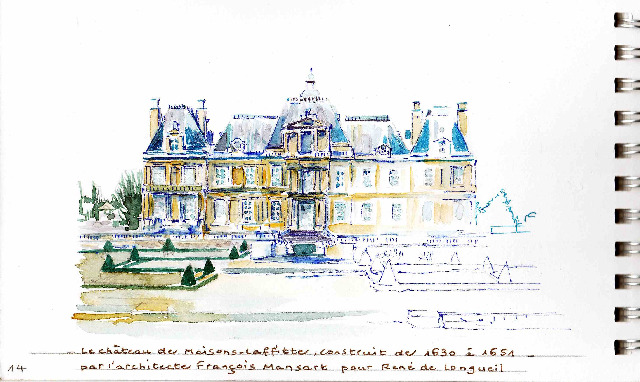 Le château de Maisons-Laffitte, construit de 1630 à 1651
14
par l'architecte François Mansart pour René de Longueil